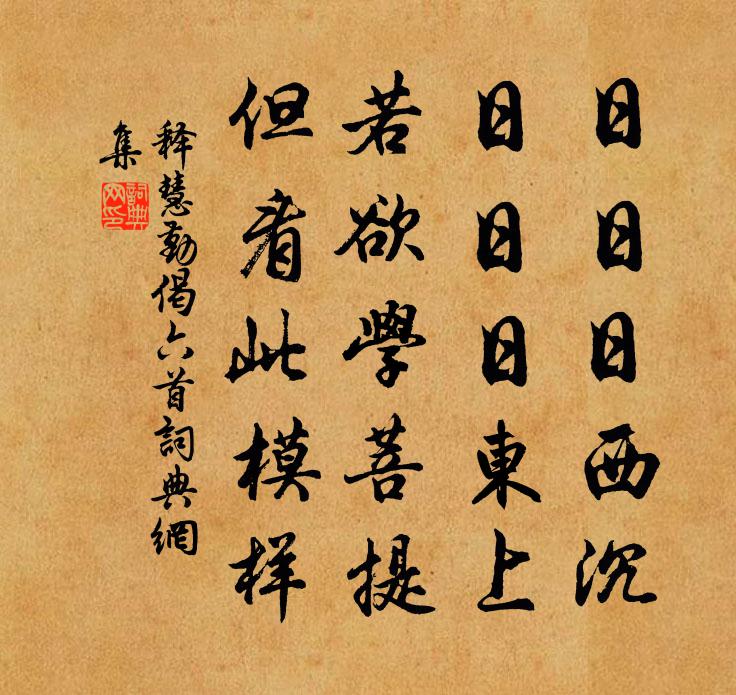 日日日西沉
日日日東上
若欲學菩提
但看此模样
释慧勤偈六首詞典網
集
詞典
网印